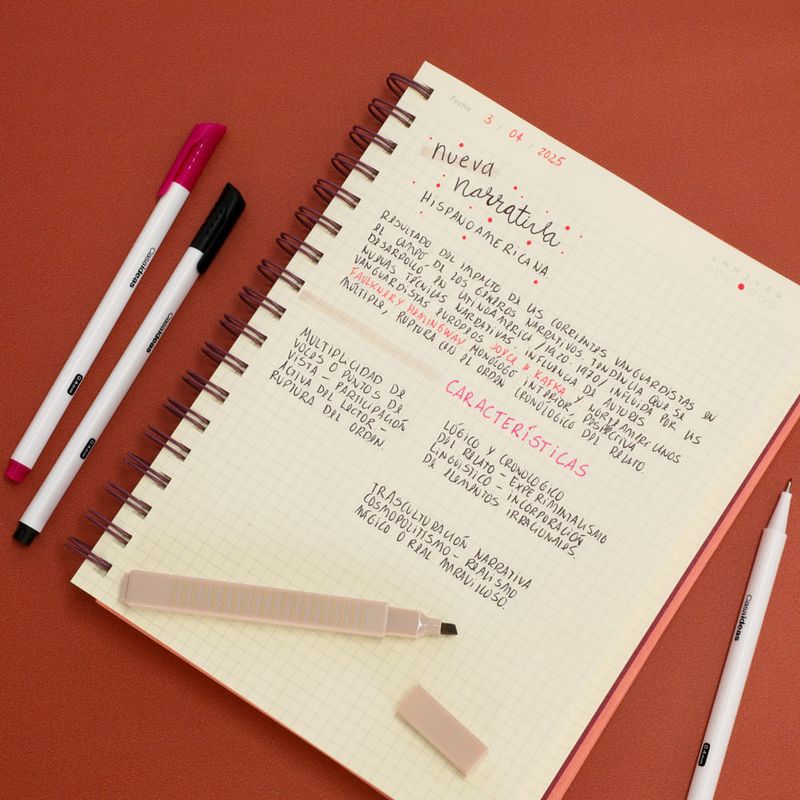 Fecha
3 / 04 / 2025
L M M J V S D
nueva
narrativa
HISPANOAMERICANA
RESULTADO DEL IMPACTO DE LAS CORRIENTES VANGUARDISTAS EN
EL CAMPO DE LOS GÉNEROS NARRATIVOS. TENDENCIA QUE SE
DESARROLLÓ EN LATINOAMÉRICA /1920-1970/ INFLUIDA POR LAS
NUEVAS TÉCNICAS NARRATIVAS. INFLUENCIA DE AUTORES
VANGUARDISTAS EUROPEOS JOYCE & KAFKA Y NORTEAMERICANOS
FAULKNER Y HEMINGWAY MONÓLOGO INTERIOR, PERSPECTIVA
MÚLTIPLE, RUPTURA CON EL ORDEN CRONOLÓGICO DEL RELATO.
CARACTERÍSTICAS
MULTIPLICIDAD DE
VOCES O PUNTOS DE
VISTA - PARTICIPACIÓN
ACTIVA DEL LECTOR -
RUPTURA DEL ORDEN.
LÓGICO Y CRONOLÓGICO
DEL RELATO - EXPERIMENTALISMO
LINGÜÍSTICO - INCORPORACIÓN
DE ELEMENTOS IRRACIONALES.
TRASCULTURACIÓN NARRATIVA
COSMOPOLITISMO - REALISMO
MÁGICO O REAL MARAVILLOSO.
Casaideas
Casaideas
Casaideas